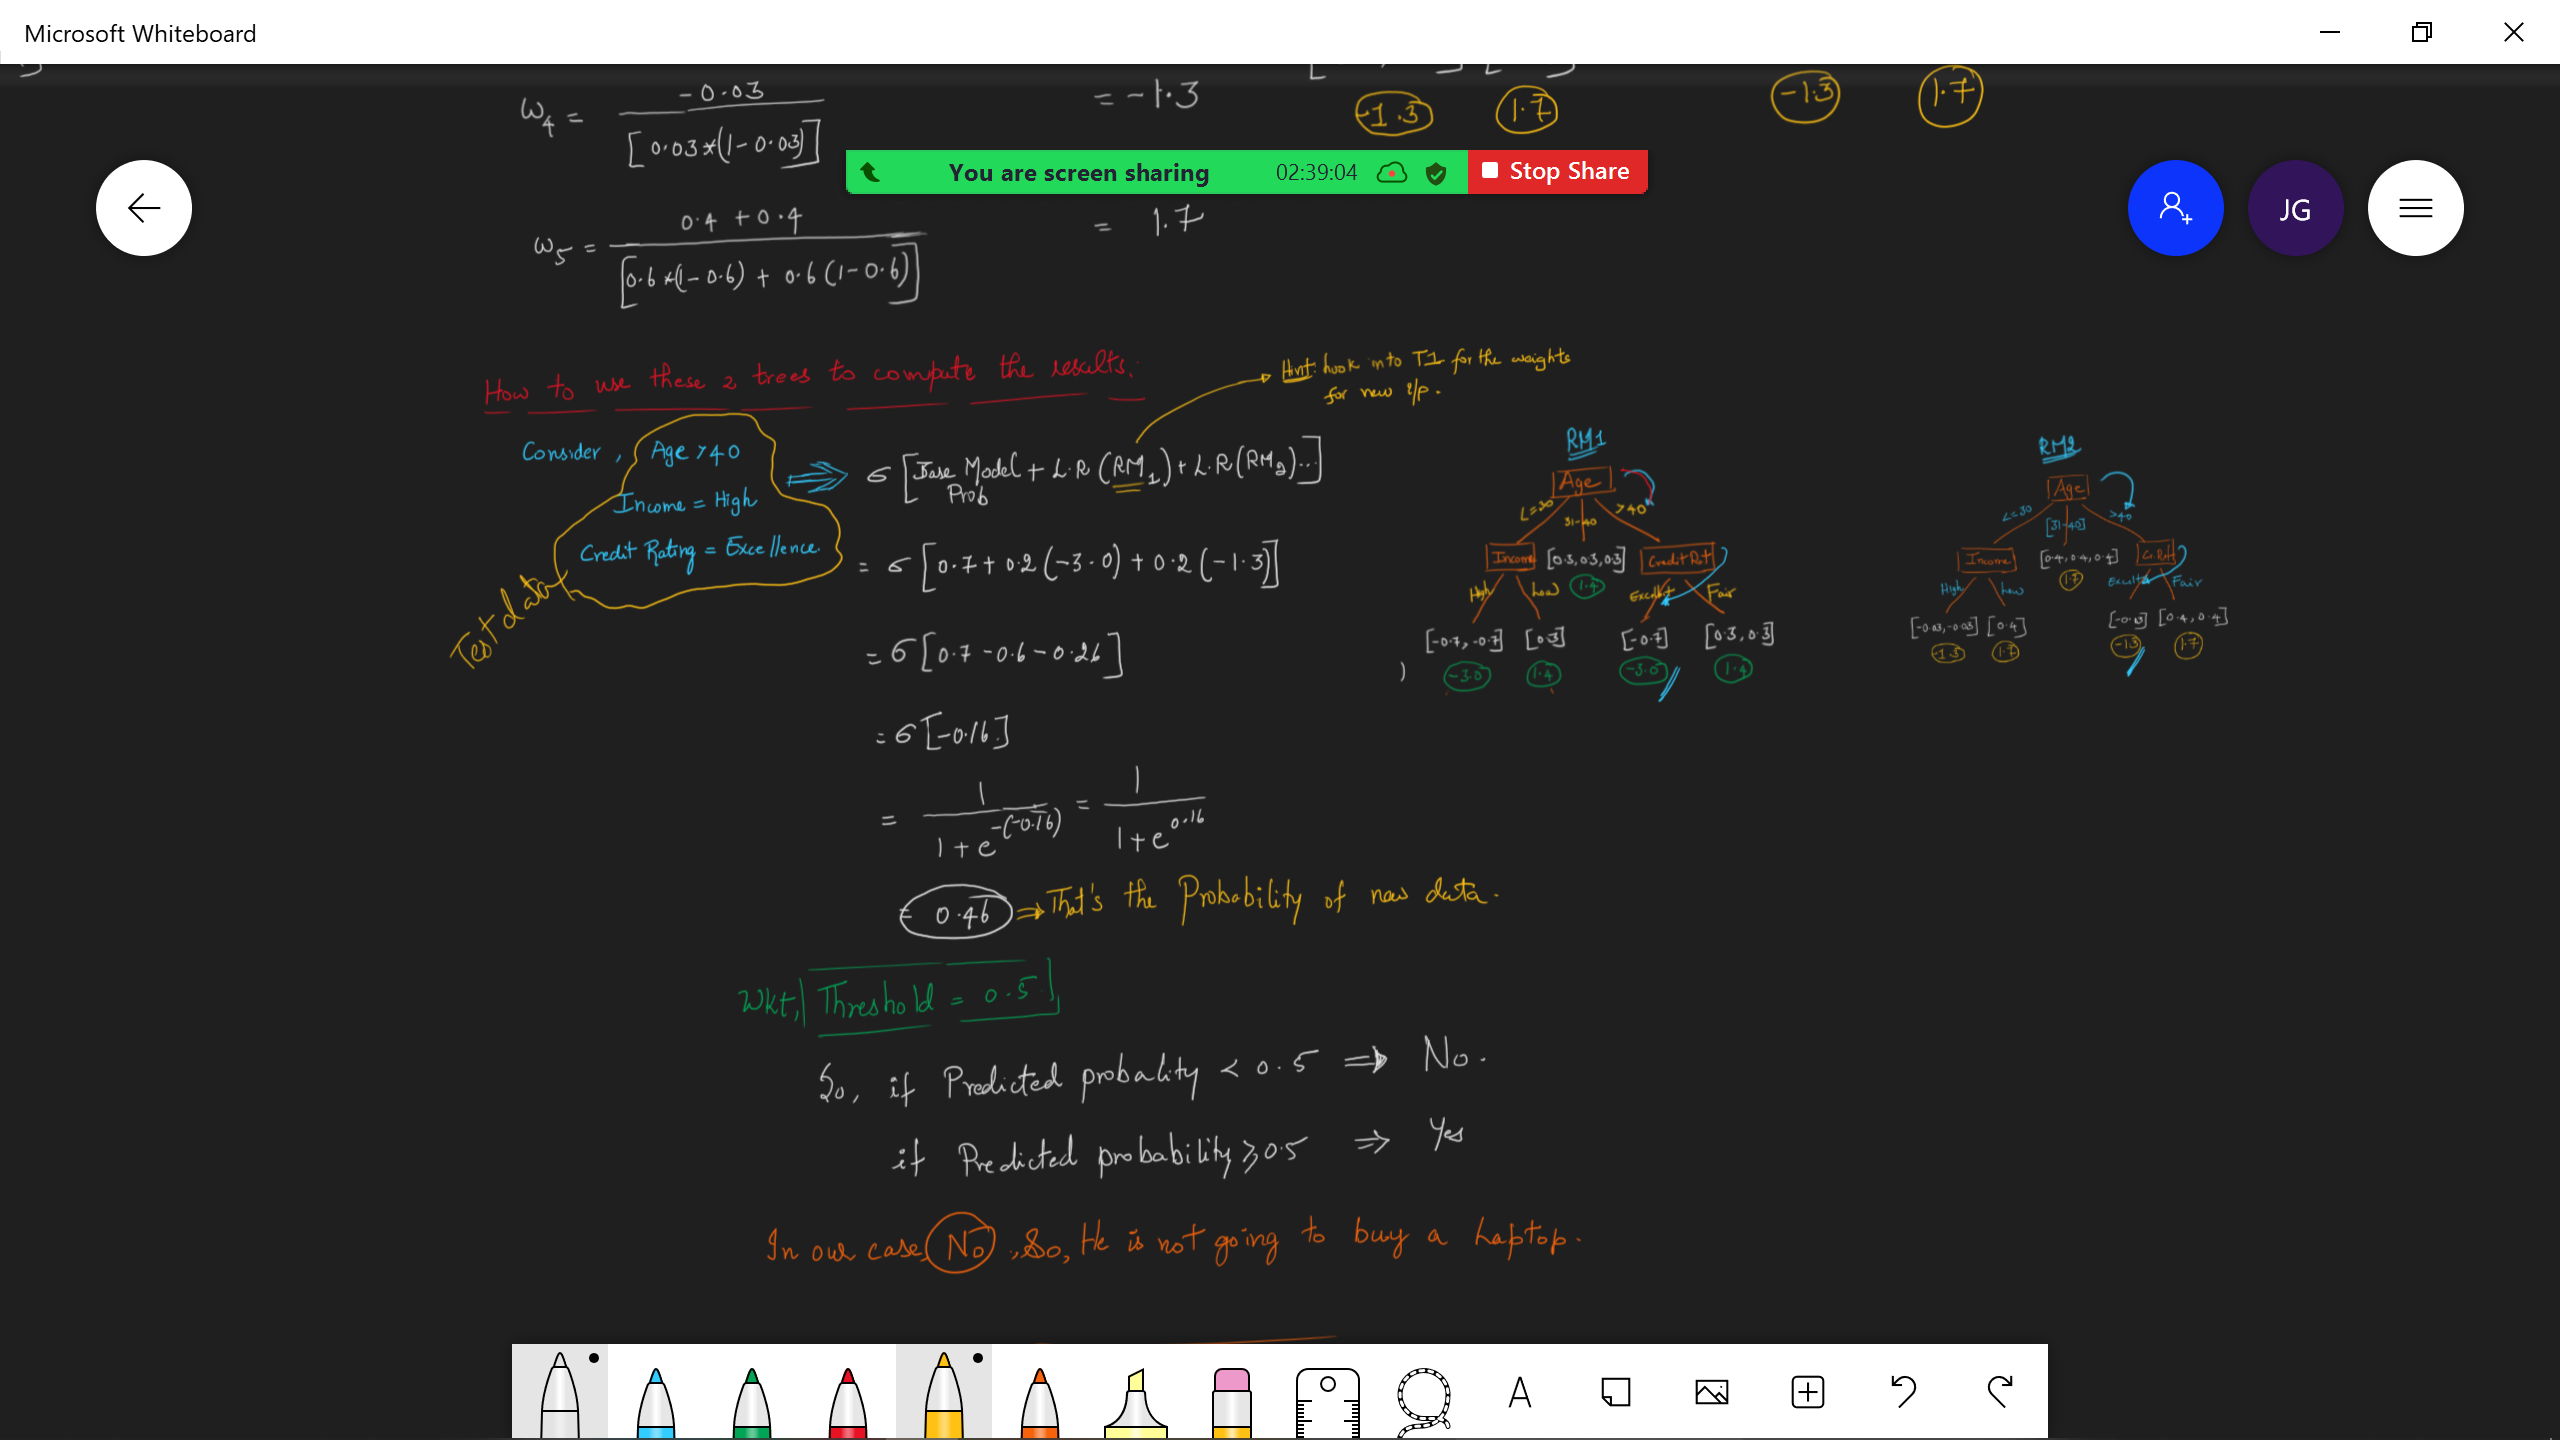 Microsoft Whiteboard
ω4 = -0.03 / [0.03*(1-0.03)] = -1.3
-1.3 1.7 -1.3 1.7
You are screen sharing 02:39:04 Stop Share
JG
ω5 = 0.4 + 0.4 / [0.6*(1-0.6) + 0.6(1-0.6)] = 1.7
How to use these 2 trees to compute the results.
Hint: hook into T1 for the weights
for new i/p.
Consider, Age >40
Income = High
Credit Rating = Excellence.
Test data
σ [Base Model + L.R (RM1) + L.R (RM2)...]
Prob
= σ [0.7 + 0.2 (-3.0) + 0.2 (-1.3)]
= σ [0.7 - 0.6 - 0.26]
= σ [-0.16]
= 1 / 1 + e^-(-0.16) = 1 / 1 + e^0.16
= 0.46 ⇒ That's the Probability of new data.
RM1
Age
L=30 31-40 >40
Income [0.3,03,0.3] Credit Rat
High Low 1.4 Excellt Fair
[-0.7, -0.7] [0.3] [-0.7] [0.3, 0.3]
-3.0 1.4 -3.0 1.4
RM2
Age
<=30 [31-40] >40
Income [0.4,0.4,0.4] C.Rat
High Low 1.7 Excellt Fair
[-0.03,-0.03] [0.4] [-0.03] [0.4, 0.4]
-1.3 1.7 -1.3 1.7
Wkt, Threshold = 0.5
So, if Predicted probality < 0.5 ⇒ No.
if Predicted probability ≥ 0.5 ⇒ Yes
In our case, No, So, He is not going to buy a Laptop.